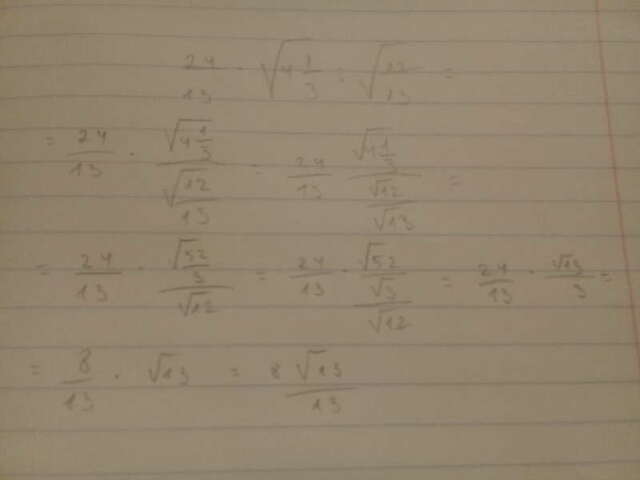 24/13 · √(4 1/3) : √(12/13) =
= 24/13 · √(4 1/3)/√(12/13) = 24/13 · √(4 1/3)/(√12/√13) =
= 24/13 · √(52/3)/√12 = 24/13 · (√52/√3)/√12 = 24/13 · √13/3 =
= 8/13 · √13 = 8√13/13